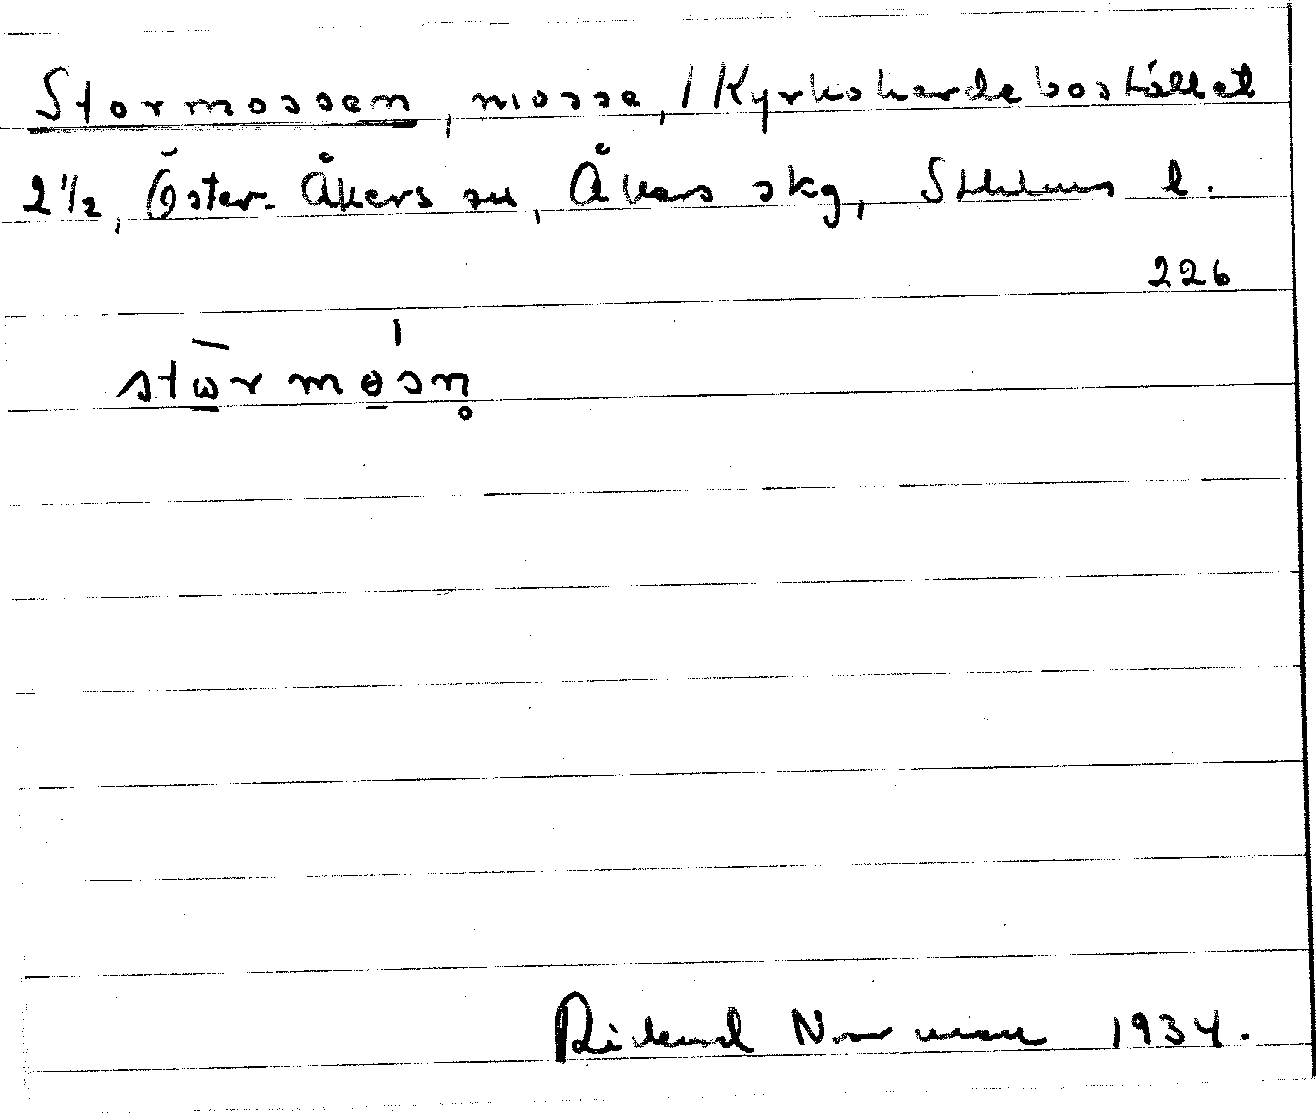 Stormossen, mosse, / Kyrkoherdebostället
2 1/2, Öster-Åkers sn, Åkers skg, Sthlms l.
226
stωrmɵsn̥
Rikard Norrman 1934.